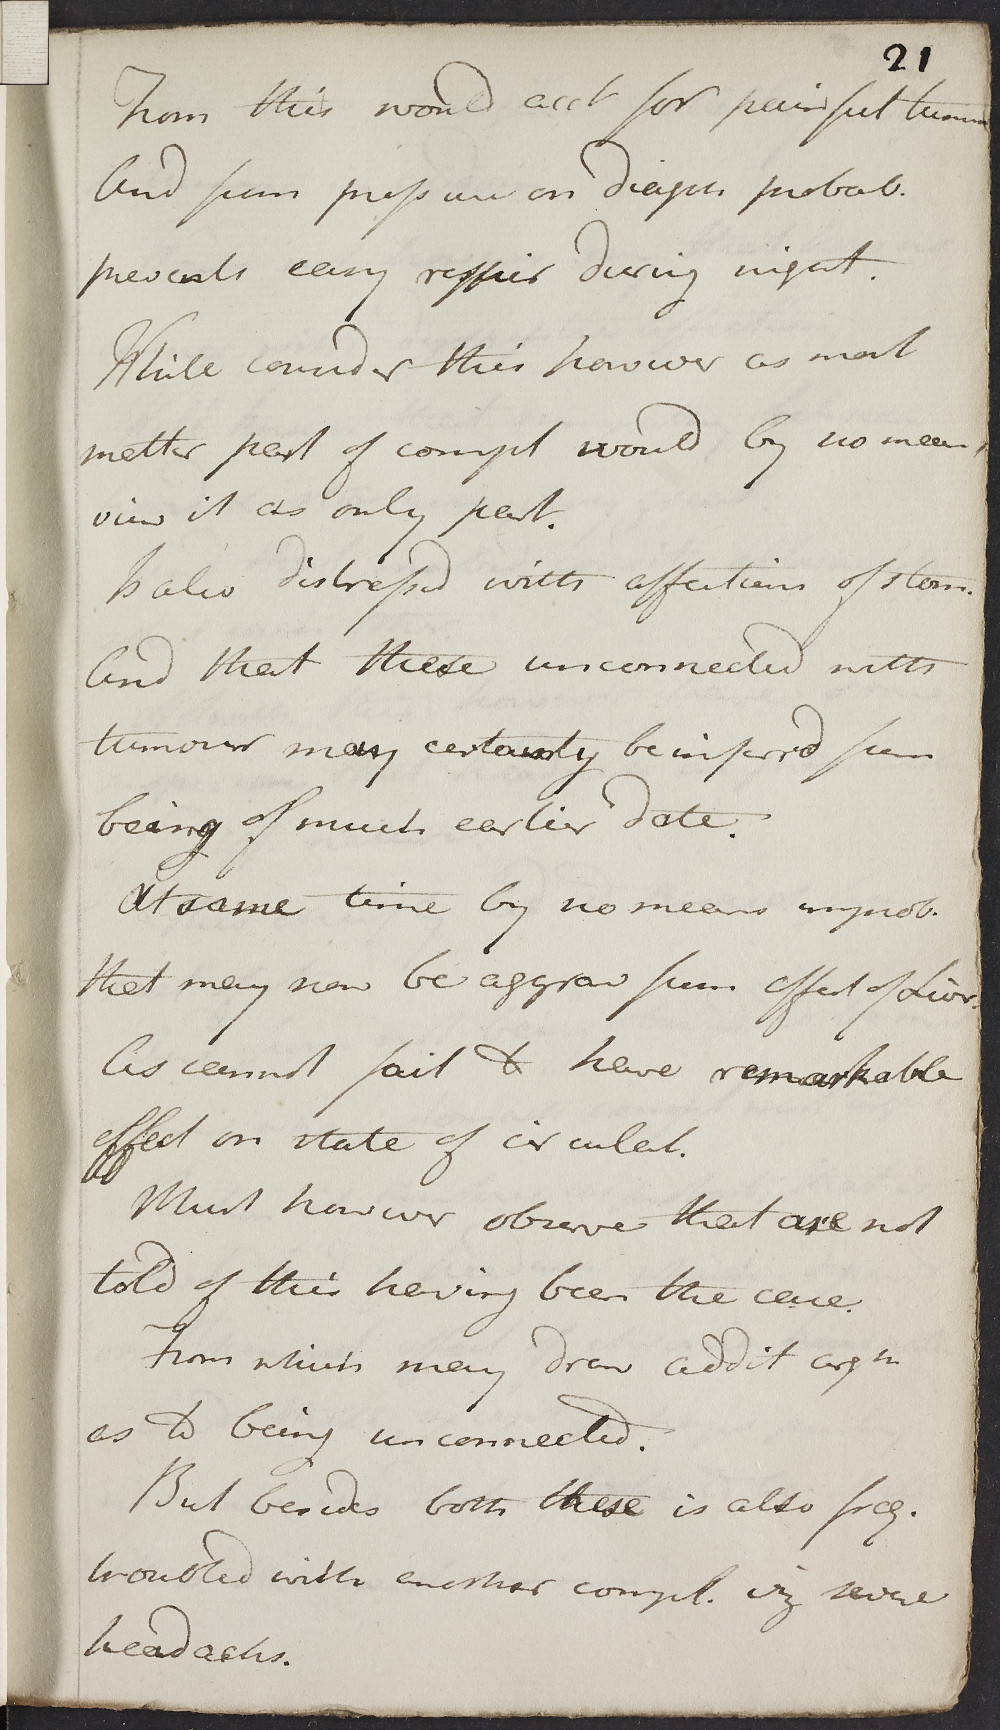 21
From this would acct for painful tumour
And from pressure on diaphr probab.
prevents easy respir during night.
While consider this however as most
matter part of compl would by no means
view it as only part.
Is also distressed with affections of stom.
And that these unconnected with
tumour may certainly be inferr'd from
being of much earlier date.
At same time by no means improb.
that may now be aggrav from affect of Liver.
As cannot fail to have remarkable
effect on state of circulat.
Must however observe that are not
told of this having been the case.
From which may draw addit argm
as to being unconnected.
But besides both these is also freq.
troubled with another compl. viz severe
headachs.